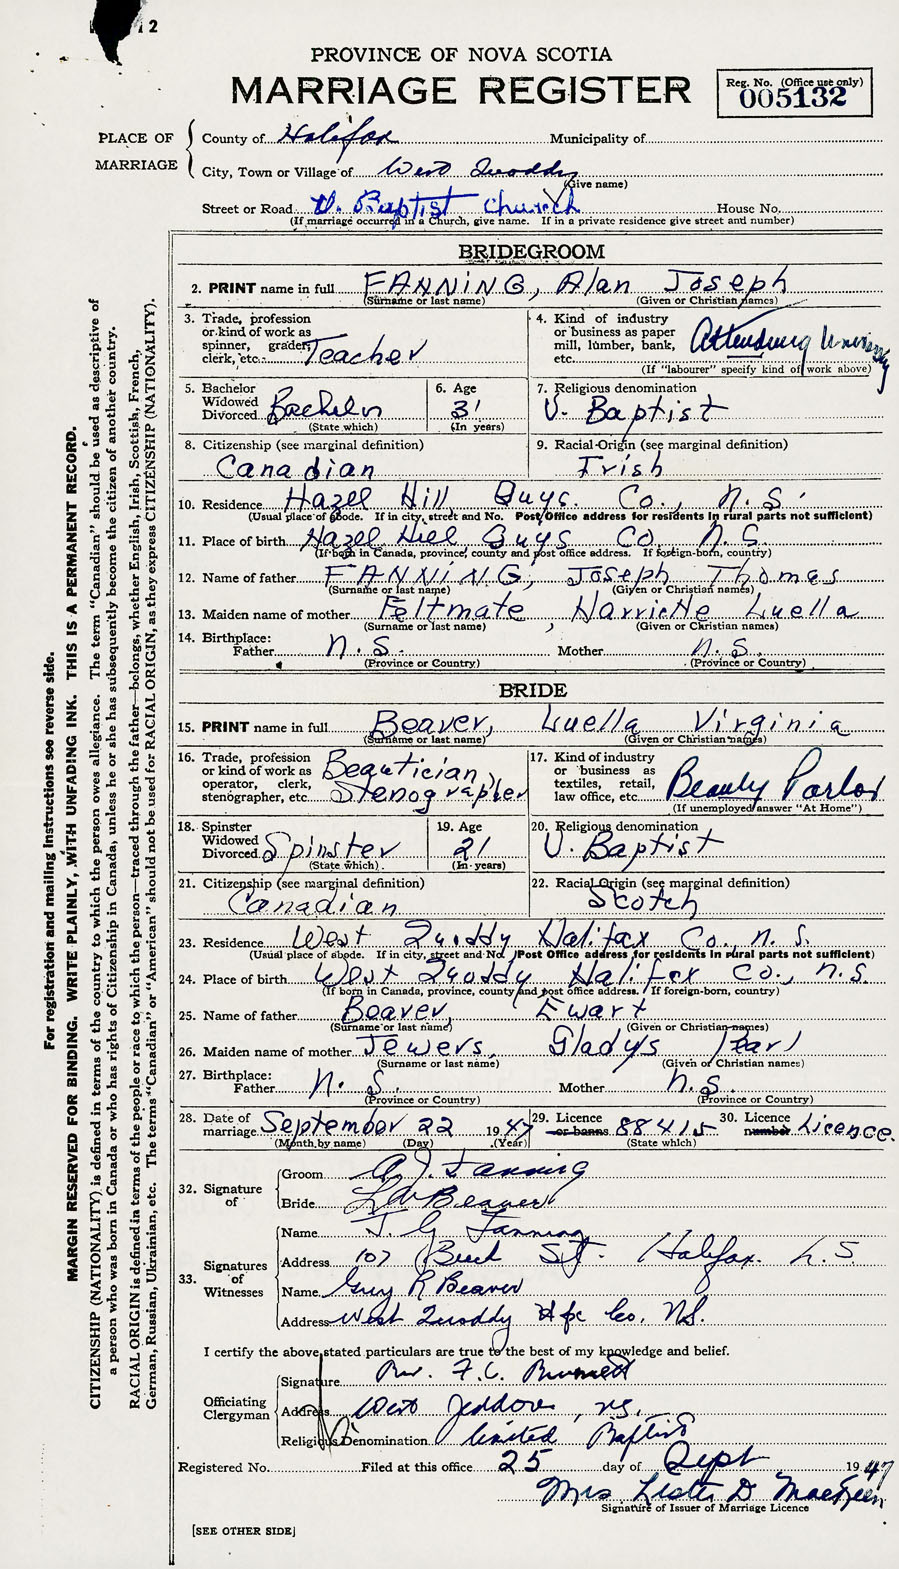 12
PROVINCE OF NOVA SCOTIA
MARRIAGE REGISTER
Reg. No. (Office use only)
005132
PLACE OF MARRIAGE
County of Halifax Municipality of
City, Town or Village of West Quoddy
(Give name)
Street or Road U. Baptist Church House No.
(If marriage occurred in a Church, give name. If in a private residence give street and number)
BRIDEGROOM
2. PRINT name in full FANNING, Alan Joseph
(Surname or last name) (Given or Christian names)
3. Trade, profession or kind of work as spinner, grader, clerk, etc. Teacher
4. Kind of industry or business as paper mill, lumber, bank, etc. Attending University
(If "labourer" specify kind of work above)
5. Bachelor Widowed Divorced Bachelor
(State which)
6. Age 31
(In years)
7. Religious denomination
U. Baptist
8. Citizenship (see marginal definition)
Canadian
9. Racial Origin (see marginal definition)
Irish
10. Residence Hazel Hill Guys. Co., N.S.
(Usual place of abode. If in city, street and No. Post Office address for residents in rural parts not sufficient)
11. Place of birth Hazel Hill Guys Co. N.S.
(If born in Canada, province, county and post office address. If foreign-born, country)
12. Name of father FANNING, Joseph Thomas
(Surname or last name) (Given or Christian names)
13. Maiden name of mother Feltmate, Harriette Luella
(Surname or last name) (Given or Christian names)
14. Birthplace:
Father N.S. Mother N.S.
(Province or Country) (Province or Country)
BRIDE
15. PRINT name in full Beaver, Luella Virginia
(Surname or last name) (Given or Christian names)
16. Trade, profession or kind of work as operator, clerk, stenographer, etc. Beautician, Stenographer
17. Kind of industry or business as textiles, retail, law office, etc. Beauty Parlor
(If unemployed answer "At Home")
18. Spinster Widowed Divorced Spinster
(State which)
19. Age 21
(In years)
20. Religious denomination
U. Baptist
21. Citizenship (see marginal definition)
Canadian
22. Racial Origin (see marginal definition)
Scotch
23. Residence West Quoddy Halifax Co., N.S.
(Usual place of abode. If in city, street and No. Post Office address for residents in rural parts not sufficient)
24. Place of birth West Quoddy Halifax Co., N.S.
(If born in Canada, province, county and post office address. If foreign-born, country)
25. Name of father Beaver, Ewart
(Surname or last name) (Given or Christian names)
26. Maiden name of mother Jewers, Gladys Pearl
(Surname or last name) (Given or Christian names)
27. Birthplace:
Father N.S. Mother N.S.
(Province or Country) (Province or Country)
28. Date of marriage September 22 1947
(Month by name) (Day) (Year)
29. Licence or banns 88415
(State which)
30. Licence number Licence.
32. Signature of
Groom A. J. Fanning
Bride L.V. Beaver
33. Signatures of Witnesses
Name J. G. Fanning
Address 107 Beech St. Halifax. N.S
Name Guy R Beaver
Address West Quoddy Hfx Co. NS.
I certify the above stated particulars are true to the best of my knowledge and belief.
Officiating Clergyman
Signature Rev. F. C.
Address West Jeddore, N.S.
Religious Denomination United Baptist
Registered No. Filed at this office 25 day of Sept 1947
Mrs Lester D.
Signature of Issuer of Marriage Licence
[SEE OTHER SIDE]
For registration and mailing Instructions see reverse side.
MARGIN RESERVED FOR BINDING. WRITE PLAINLY, WITH UNFADING INK. THIS IS A PERMANENT RECORD.
CITIZENSHIP (NATIONALITY) is defined in terms of the country to which the person owes allegiance. The term "Canadian" should be used as descriptive of
a person who was born in Canada or who has rights of Citizenship in Canada, unless he or she has subsequently become the citizen of another country.
RACIAL ORIGIN is defined in terms of the people or race to which the person—traced through the father—belongs, whether English, Irish, Scottish, French,
German, Russian, Ukrainian, etc. The terms "Canadian" or "American" should not be used for RACIAL ORIGIN, as they express CITIZENSHIP (NATIONALITY).